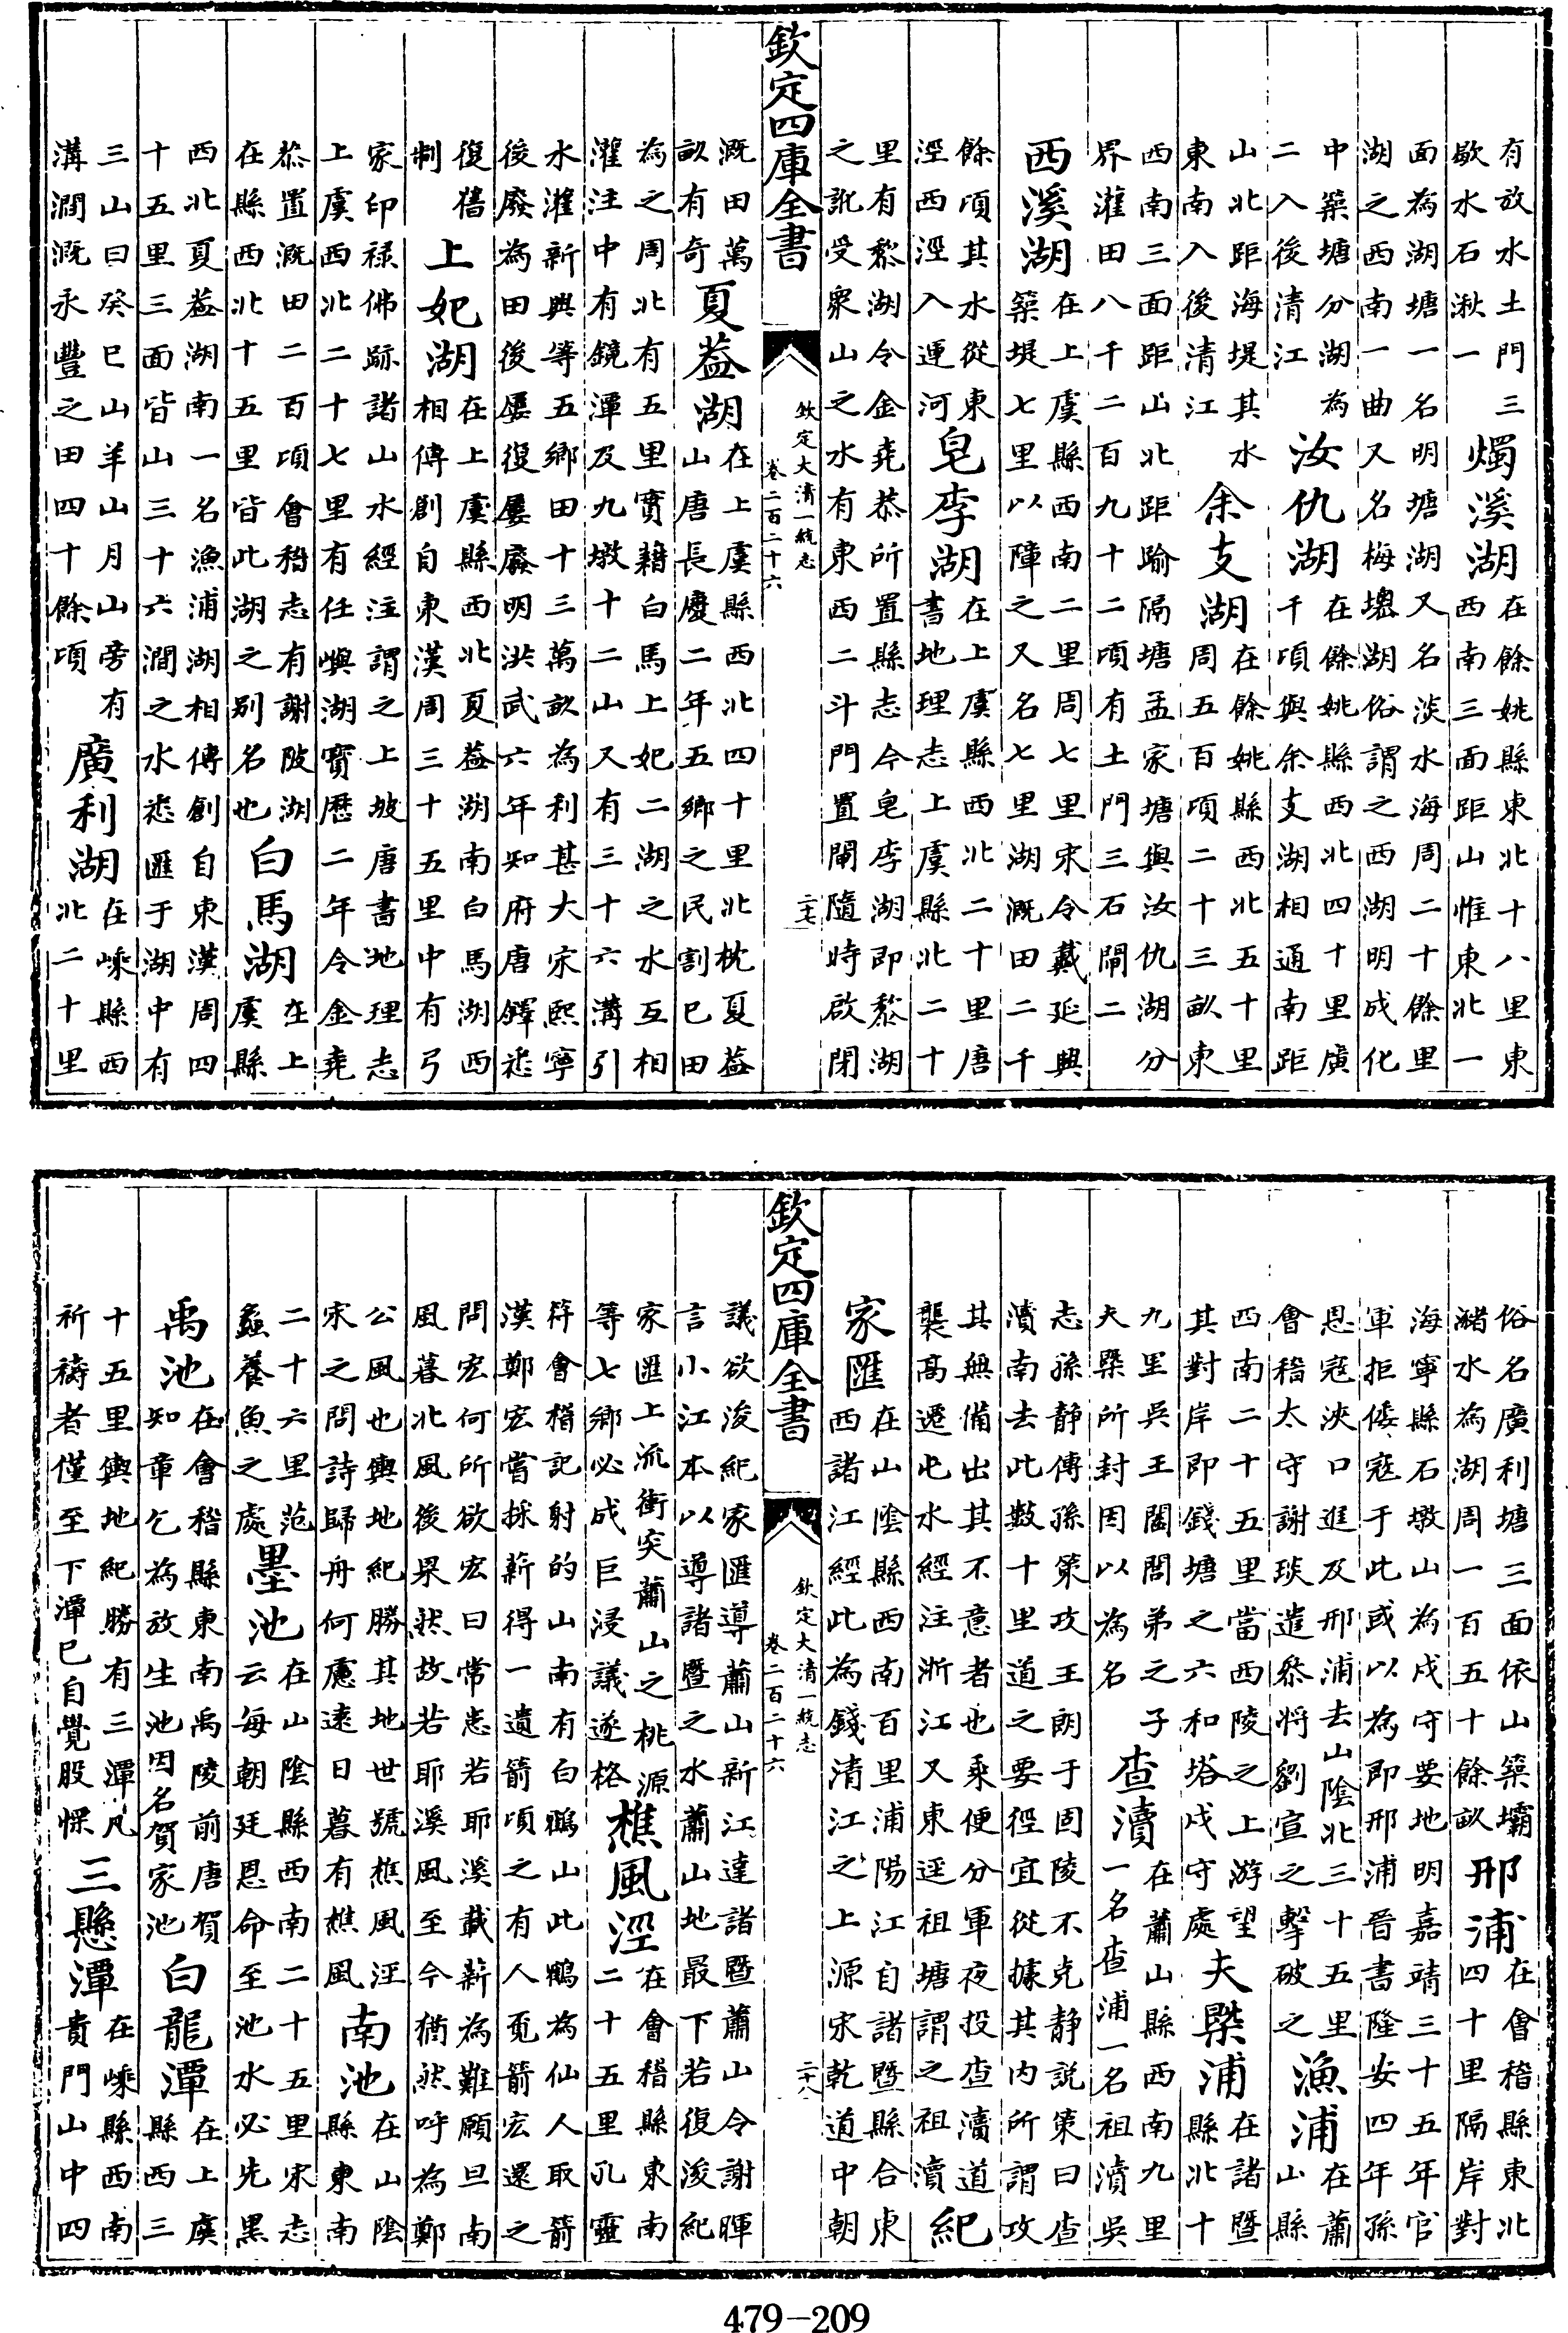 有放水土門三
歇水石湫一
燭溪湖
在餘姚縣東北十八里東
西南三面距山惟東北一
面為湖塘一名明塘湖又名淡水海周二十餘里
湖之西南一曲又名梅湖俗謂之西湖明成化
中築塘分湖為
二入後清江
汝仇湖
在餘姚縣西北四十里廣
千頃與余支湖相通南距
山北距海堤其水
東南入後清江
余支湖
在餘姚縣西北五十里
周五百項二十三畝東
西南三面距山北距踰隔塘孟家塘與汝仇湖分
界灌田八千二百九十二頃有土門三石閘二
西溪湖
在上虞縣西南二里周七里宋令戴延興
築堤七里以障之又名七里湖溉田二千
餘項其水從東
涇西涇入運河
皂李湖
在上虞縣西北二十里唐
書地理志上虞縣北二十
里有黎湖令金堯恭所置縣志今皂李湖即黎湖
之訛受衆山之水有東西二斗門置閘隨時啟閉
欽定四庫全書
欽定大清一統志
卷二百二十六
二七
溉田萬
畝有奇
夏葢湖
在上虞縣西北四十里北枕夏葢
山唐長慶二年五鄉之民割已田
為之周北有五里實藉白馬上妃二湖之水互相
灌注中有鏡潭及九墩十二山又有三十六溝引
水灌新興等五鄉田十三萬畝為利甚大宋熙寧
後廢為田後屢復屢廢明洪武六年知府唐鐸悉
復舊
制
上妃湖
在上虞縣西北夏葢湖南白馬湖西
相傳創自東漢周三十五里中有弓
家印禄佛跡諸山水經注謂之上坡唐書地理志
上虞西北二十七里有任嶼湖寳厯二年令金堯
恭置溉田二百頃會稽志有謝陂湖
在縣西北十五里皆此湖之别名也
白馬湖
在上
虞縣
西北夏葢湖南一名漁浦湖相傳創自東漢周四
十五里三面皆山三十六澗之水悉匯于湖中有
三山曰癸巳山羊山月山旁有
溝澗溉永豐之田四十餘頃
廣利湖
在嵊縣西
北二十里
俗名廣利塘三面依山築壩
瀦水為湖周一百五十餘畝
邢浦
在會稽縣東北
四十里隔岸對
海寧縣石墩山為戍守要地明嘉靖三十五年官
軍拒倭寇于此或以為即邢浦晉書隆安四年孫
恩寇浹口進及邢浦去山陰北三十五里
會稽太守謝琰遣叅將劉宣之擊破之
漁浦
在蕭
山縣
西南二十五里當西陵之上游望
其對岸即錢塘之六和塔戍守處
夫槩浦
在諸暨
縣北十
九里吳王闔閭弟之子
夫槩所封因以為名
查瀆
在蕭山縣西南九里
一名查浦一名祖瀆吳
志孫静傳孫策攻王朗于固陵不克静説策曰查
瀆南去此數十里道之要徑宜從據其内所謂攻
其無備出其不意者也乘便分軍夜投查瀆道
襲髙遷屯水經注浙江又東逕祖塘謂之祖瀆
紀
家匯
在山陰縣西南百里浦陽江自諸暨縣合東
西諸江經此為錢清江之上源宋乾道中朝
欽定四庫全書
欽定大清一統志
卷二百二十六
二十八
議欲浚紀家匯導蕭山新江達諸暨蕭山令謝暉
言小江本以導諸暨之水蕭山地最下若復浚紀
家匯上流衝突蕭山之桃源
等七鄉必成巨浸議遂格
樵風涇
在會稽縣東南
二十五里孔靈
符會稽記射的山南有白鶴山此鶴為仙人取箭
漢鄭宏嘗採薪得一遺箭頃之有人覓箭宏還之
問宏何所欲宏曰常患若耶溪載薪為難願旦南
風暮北風後果然故若耶溪風至今猶然呼為鄭
公風也輿地紀勝其地世號樵風涇
宋之問詩歸舟何慮遠日暮有樵風
南池
在山陰
縣東南
二十六里范
蠡養魚之處
墨池
在山陰縣西南二十五里宋志
云每朝廷恩命至池水必先黒
禹池
在會稽縣東南禹陵前唐賀
知章乞為放生池因名賀家池
白龍潭
在上虞
縣西三
十五里輿地紀勝有三潭凡
祈禱者僅至下潭已自覺股慄
三懸潭
在嵊縣西南
貴門山中四
479-209